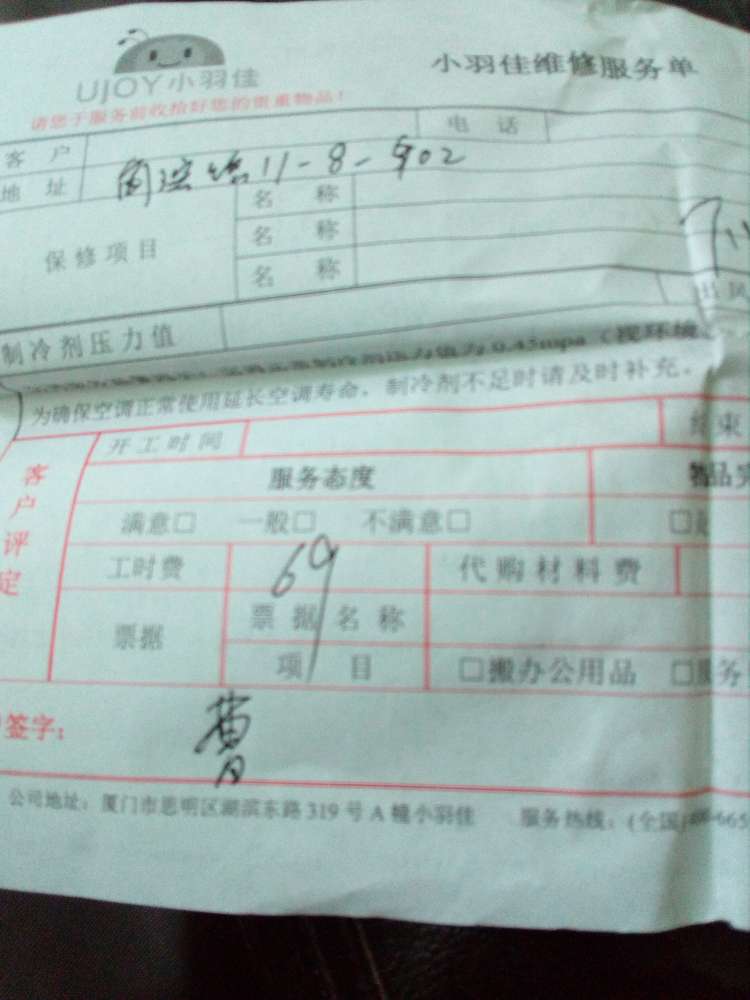 UJOY小羽佳
小羽佳维修服务单
请您于服务前收拾好您的贵重物品！
客户
电话
地址 11-8-902
保修项目
名称
名称
名称
出风
制冷剂压力值
0.45mpa（视环境
为确保空调正常使用延长空调寿命，制冷剂不足时请及时补充。
客户评定
开工时间
结束
服务态度
物品完
满意□ 一般□ 不满意□
工时费 69 代购材料费
票据
票据名称
项目
□搬办公用品 □服务
签字：
公司地址：厦门市思明区湖滨东路319号A幢小羽佳 服务热线：(全国)400-665